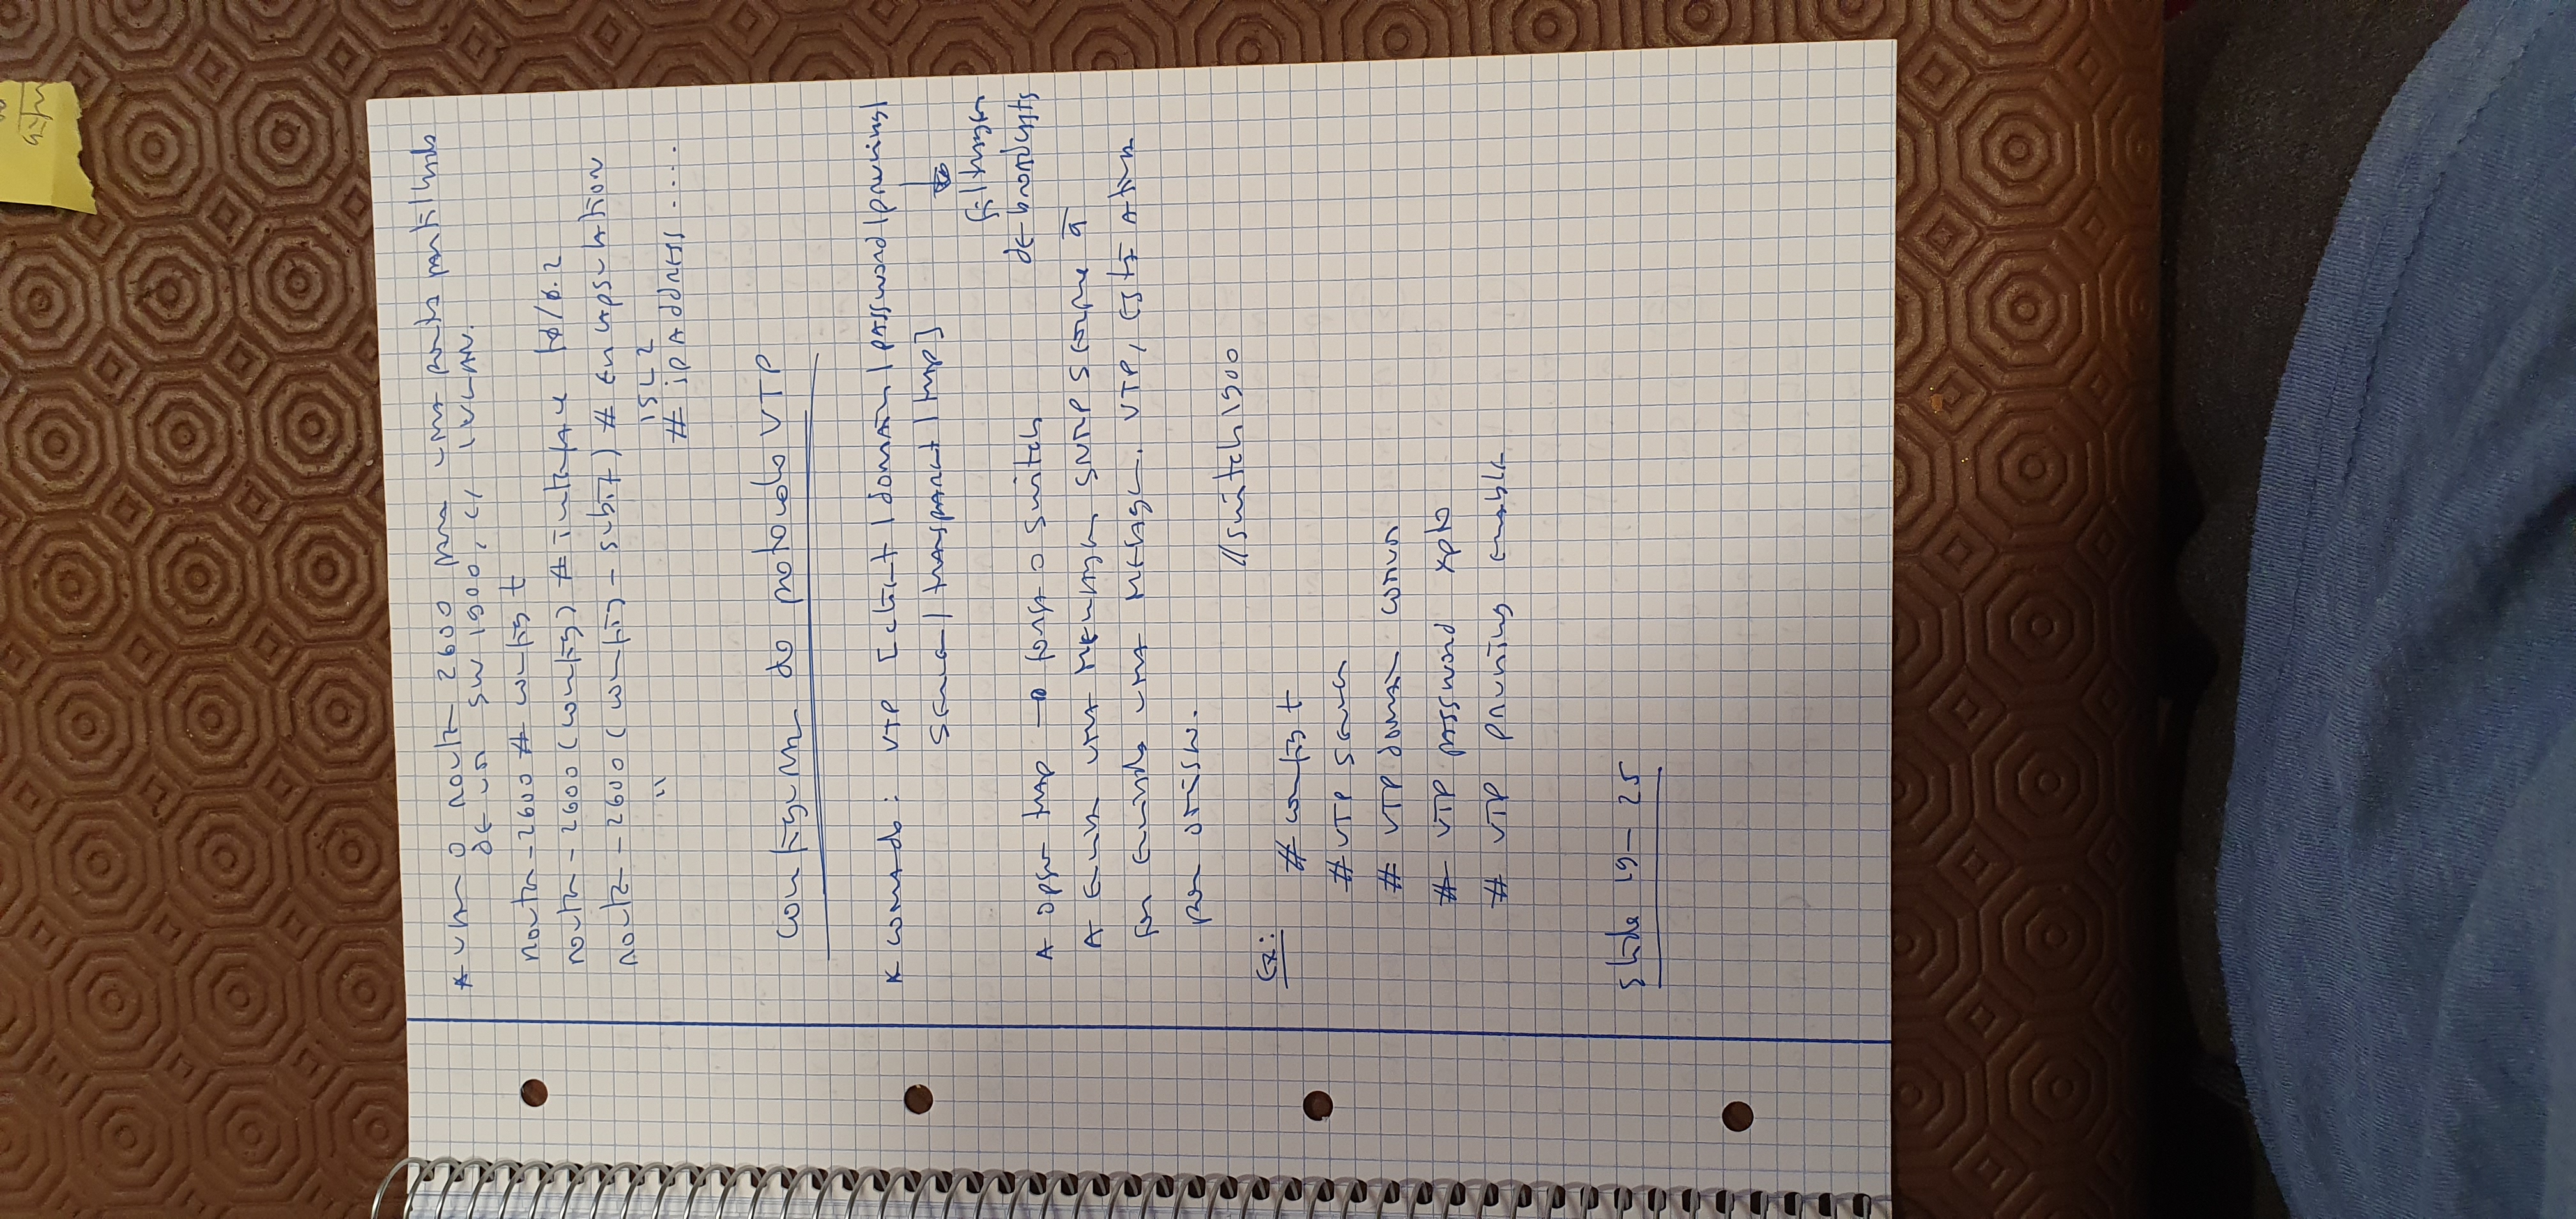 * Usar o router 2600 para uma porta partilhada
de um SW 1900, c/ 1 VLAN.
router-2600 # config t
router-2600 (config) # interface f0/0.2
router-2600 (config-subif) # encapsulation
ISL 2
" # ip address ....
Configurar do protocolo VTP
* comando: VTP [client | domain | password | pruning |
server | transparent | trap]
filtragem
de broadcasts
A opção trap → força o switch
a enviar uma mensagem SNMP sempre q
for enviada uma mensagem VTP, está ativa
por
// switch 1900
Ex:
# config t
# VTP server
# VTP domain
# VTP password xpto
# VTP pruning enable
slide 19 - 25